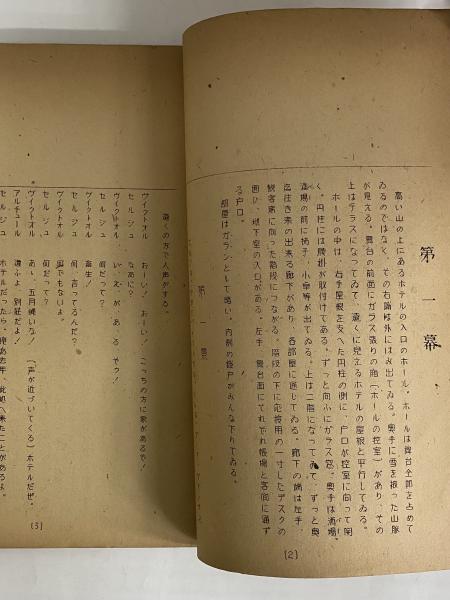 第一幕
高い山の上にあるホテルの入口のホール。ホールは舞台全部を占めて
ゐるのではなく、その右端は外にはみ出てゐる。奥手に雪を被った山脈
が見える。舞台の前面にガラス張りの廊(ホールの控室)があり、その
上はテラスになってゐて、遠くに見えるホテルの屋根と平行してゐる。
ホールの中は、右手屋根を支へた円柱の側に、戸口が控室に向って開
く。円柱には腰掛が取付けてある。ずっと向ふにガラス窓。奥手は酒場。
酒場の前に椅子、小卓等が出てゐる。上は二階になってゐて、ずっと奥
迄往き来の出来る廊下があり、各部屋に通じてゐる。廊下の端は左手、
観客席に向った階段につながる。階段の下に応接用の一寸したデスクの
囲ひ、地下室の入口がある。左手、舞台面にそれぞれ帳場と客間に通ず
る戸口。
部屋はガランとして暗い。内側の鎧戸がみんな下りてゐる。
(2)
第一景
遠くの方で人声がする。
ヴィクトオル おーい!おーい!こっちの方に家があるぞ!
セルジュ なあに?
ヴィクトオル い、え、が、あ、る、ぞう!
セルジュ 何だって?
ヴィクトオル 畜生!
セルジュ 何、言ってるんだ?
ヴィクトオル 何でもないよ。
セルジュ 何だって?
ヴィクトオル あゝ、五月蝿いな!(声が近づいてくる)ホテルだぜ。
アルチュール 違ふよ、別荘だよ!
セルジュ ホテルだったら、俺去年、此処へ来たことがあるよ。
(3)